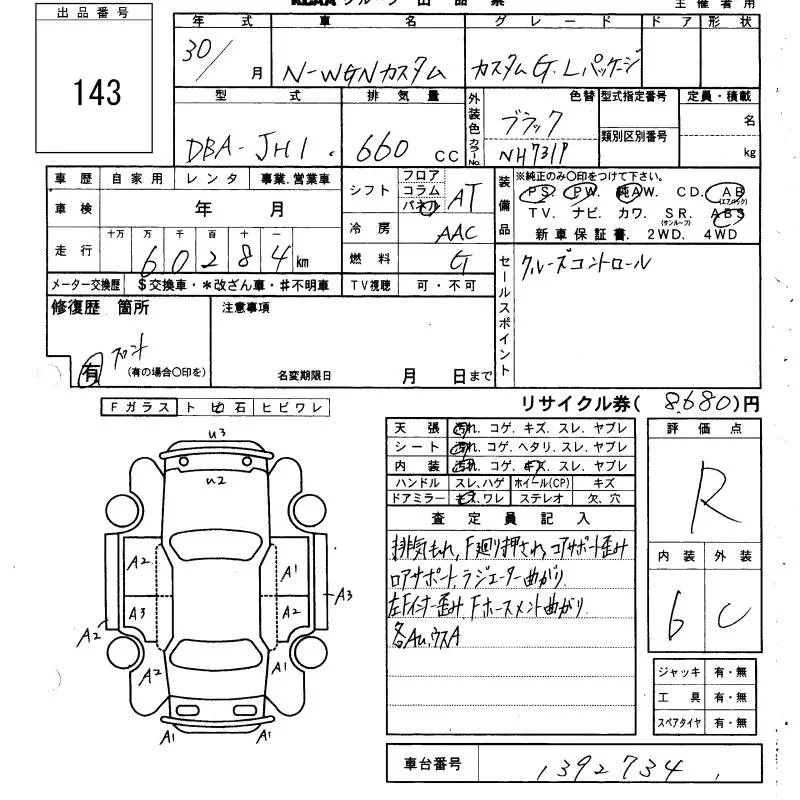 KCAA グループ 出品票
主催者用
出品番号
143
年式 車名 グレード ドア 形状
30/ 月 N-WGNカスタム カスタムG.Lパッケージ
型式 排気量 外装色 カラーNo. 色替 型式指定番号 定員・積載
DBA-JH1 660 CC ブラック 名
NH731P 類別区別番号 kg
車歴 自家用 レンタ 事業.営業車
車検 年 月
走行 十万 万 千 百 十 一
60284 km
メーター交換歴 $交換車・*改ざん車・#不明車
シフト フロア コラム パネル AT
冷房 AAC
燃料 G
TV視聴 可・不可
装備品 ※純正のみ〇印をつけて下さい。
PS. PW. 純AW. CD. AB (エアバック)
TV. ナビ. カワ. SR. (サンルーフ) ABS
新車保証書. 2WD. 4WD
セールスポイント クルーズコントロール
修復歴 箇所
有 フロント (有の場合〇印を)
注意事項
名変期限日 月 日まで
リサイクル券( 8,680 )円
Fガラス トビ石 ヒビワレ
天張 汚れ. コゲ. キズ. スレ. ヤブレ
シート 汚れ. コゲ. ヘタリ. スレ. ヤブレ
内装 汚れ. コゲ. キズ. スレ. ヤブレ
ハンドル スレ、ハゲ ホイール(CP) キズ
ドアミラー キズ、ワレ ステレオ 欠、穴
評価点
R
内装 外装
6 C
査定員記入
排気もれ, F廻り押され コアサポート歪み
ロアサポート, ラジエーター曲がり
左Fインナー歪み, Fホースメント曲がり
各AU, ウスA
U3
U2
A2 A1
A3 A2 A3
A2
A2 A1
A1 A1
ジャッキ 有・無
工具 有・無
スペアタイヤ 有・無
車台番号 1392734